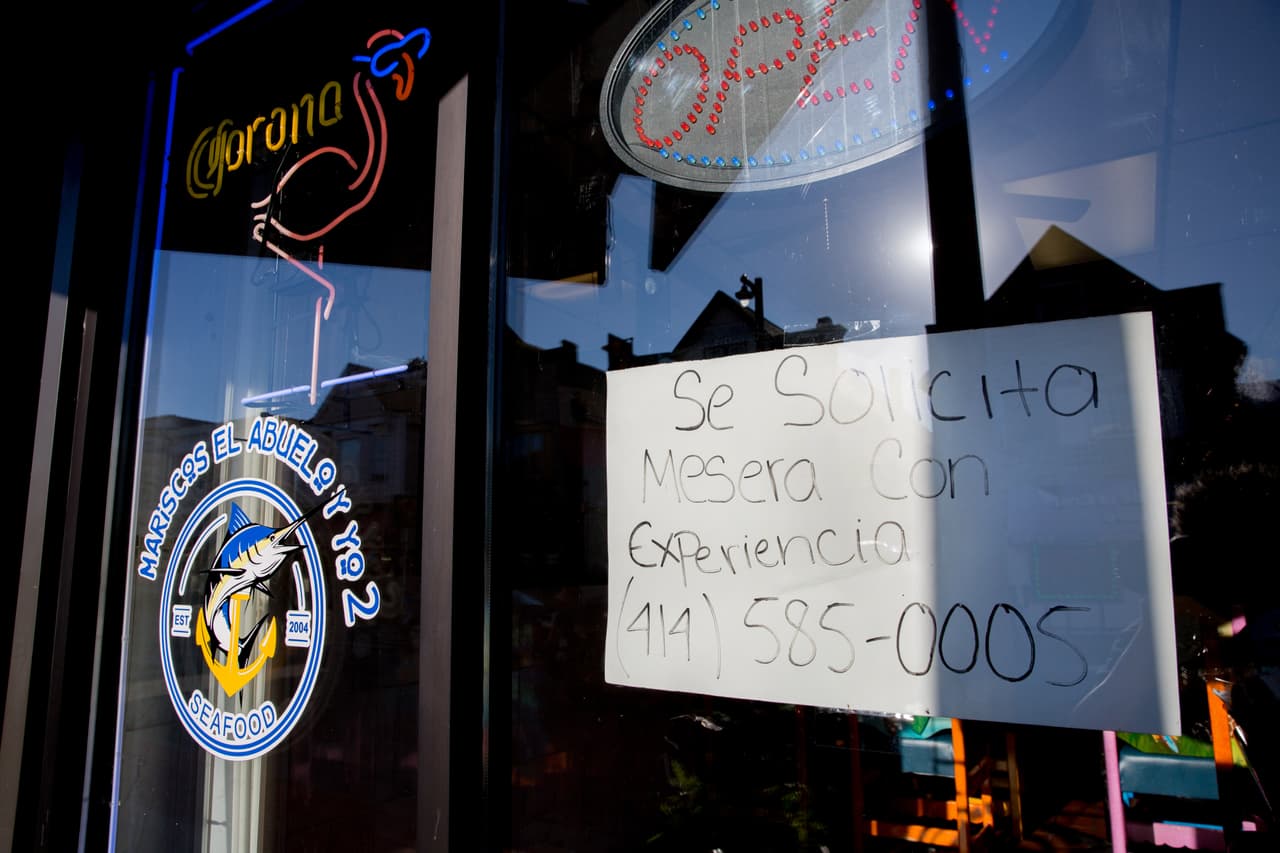 Corona
OPEN
MARISCOS EL ABUELO Y YO 2
EST 2004
SEAFOOD
Se Solicita
Mesera Con
Experiencia
(414) 585-0005